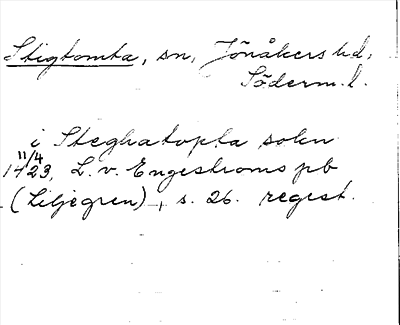 Stigtomta, sn, Jönåkers hd,
Söderm. l.
i Steghatopta sokn
11/4
1423, L. v. Engeströms pb
(Liljegren), s. 26. regest.